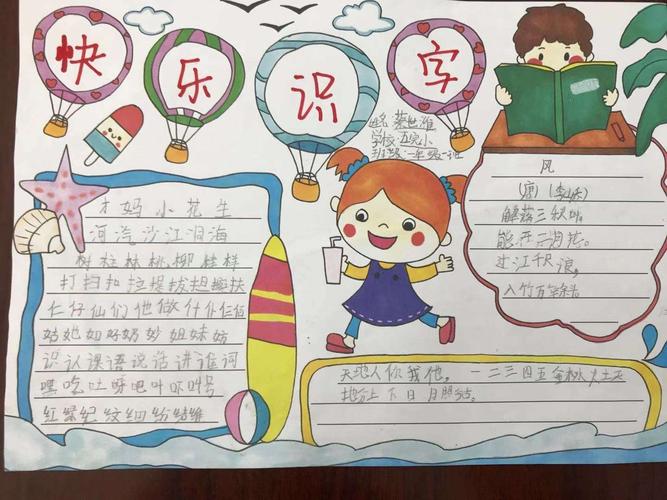 快乐识字
姓名 蔡世雅
学校 五完小
班级 一年级一班
木妈小花生
河汽沙江洞海
树拉林桃柳桂样
打扫扣拉提拔担扶
仁仔仙们他做什仆仁估
姑她如好奶妙姐妹妨
识认课语说话讲谁词
嘿吃吐呀吧叶吓号
红绿纪纹细纷结维
风
唐 李峤
解落三秋叶
能开二月花。
过江千尺浪,
入竹万竿斜
天地人你我他, 一二三四五金木水火土
上下日月